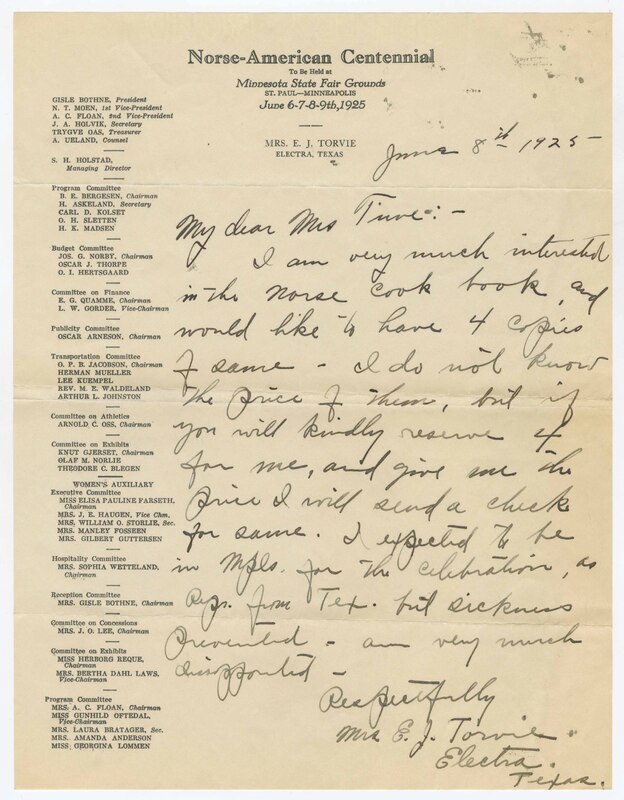 Norse-American Centennial
To Be Held at
Minnesota State Fair Grounds
ST. PAUL—MINNEAPOLIS
June 6-7-8-9th, 1925
MRS. E. J. TORVIE
ELECTRA, TEXAS
GISLE BOTHNE, President
N. T. MOEN, 1st Vice-President
A. C. FLOAN, 2nd Vice-President
J. A. HOLVIK, Secretary
TRYGVE OAS, Treasurer
A. UELAND, Counsel
S. H. HOLSTAD,
Managing Director
Program Committee
B. E. BERGESEN, Chairman
H. ASKELAND, Secretary
CARL D. KOLSET
O. H. SLETTEN
H. K. MADSEN
Budget Committee
JOS. G. NORBY, Chairman
OSCAR J. THORPE
O. I. HERTSGAARD
Committee on Finance
E. G. QUAMME, Chairman
L. W. GORDER, Vice-Chairman
Publicity Committee
OSCAR ARNESON, Chairman
Transportation Committee
O. P. B. JACOBSON, Chairman
HERMAN MUELLER
LEE KUEMPEL
REV. M. E. WALDELAND
ARTHUR L. JOHNSTON
Committee on Athletics
ARNOLD C. OSS, Chairman
Committee on Exhibits
KNUT GJERSET, Chairman
OLAF M. NORLIE
THEODORE C. BLEGEN
WOMEN'S AUXILIARY
Executive Committee
MISS ELISA PAULINE FARSETH,
Chairman
MRS. J. E. HAUGEN, Vice Chm.
MRS. WILLIAM O. STORLIE, Sec.
MRS. MANLEY FOSSEEN
MRS. GILBERT GUTTERSEN
Hospitality Committee
MRS. SOPHIA WETTELAND,
Chairman
Reception Committee
MRS. GISLE BOTHNE, Chairman
Committee on Concessions
MRS. J. O. LEE, Chairman
Committee on Exhibits
MISS HERBORG REQUE,
Chairman
MRS. BERTHA DAHL LAWS,
Vice-Chairman
Program Committee
MRS. A. C. FLOAN, Chairman
MISS GUNHILD OFTEDAL,
Vice-Chairman
MRS. LAURA BRATAGER, Sec.
MRS. AMANDA ANDERSON
MISS GEORGINA LOMMEN
June 8th 1925
My dear Mrs Tuve:-
I am very much interested
in the Norse cook book, and
would like to have 4 copies
of same - I do not know
the price of them, but if
you will kindly reserve 4
for me, and give me the
price I will send a check
for same. I expected to be
in Mpls. for the celebration, as
Rep. from Tex. but sickness
prevented - am very much
dissopponted -
Respectfully
Mrs E. J. Torvie.
Electra.
Texas.